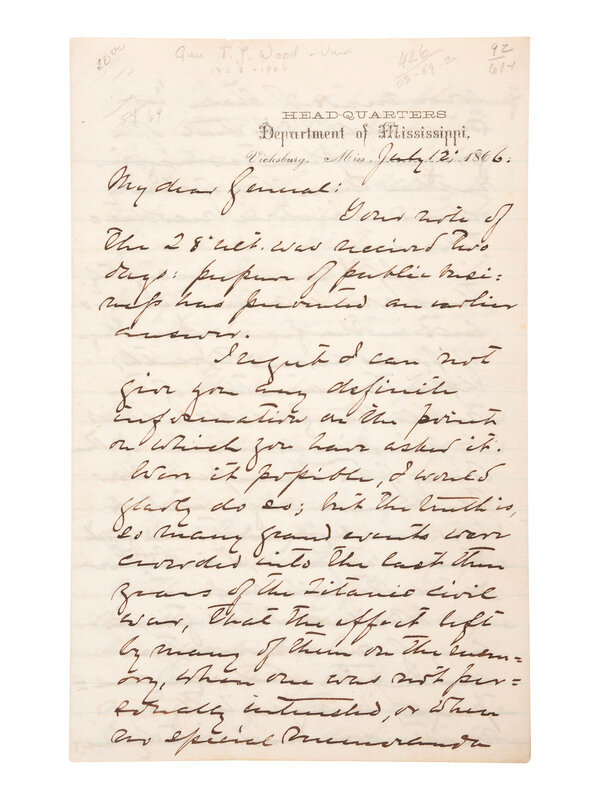 20 00
Gen T. J. Wood
426
92
614
HEAD-QUARTERS
Department of Mississippi,
Vicksburg, Miss, July 12, 1866.
My dear General:
Your note of
the 28" ult. was received two
days: pressure of public busi=
ness has prevented an earlier
answer.
I regret I can not
give you any definite
information on the point
on which you have asked it.
Were it possible, I would
gladly do so; but the truth is,
so many grand events were
crowded into the last three
years of the Titanic civil
war, that the effect left
by many of them on the mem=
ory, when one was not per=
sonally interested, or when
no special memoranda